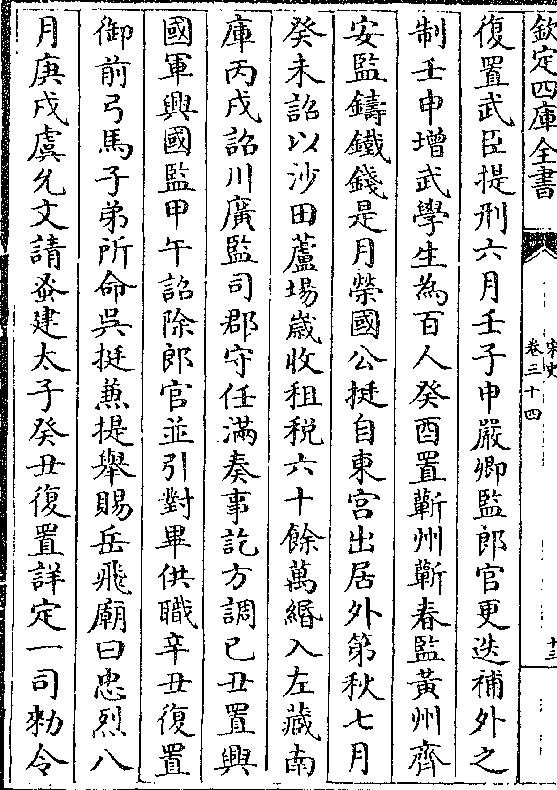 欽定四庫全書
宋史
卷三十四
十三
復置武臣提刑六月壬子申嚴卿監郎官更迭補外之
制壬申增武學生為百人癸酉置蘄州蘄春監黃州齊
安監鑄鐵錢是月榮國公挺自東宮出居外第秋七月
癸未詔以沙田蘆場歳收租税六十餘萬緡入左藏南
庫丙戌詔川廣監司郡守任滿奏事訖方調已丑置興
國軍興國監甲午詔除郎官並引對畢供職辛丑復置
御前弓馬子弟所命吳挺兼提舉賜岳飛廟曰忠烈八
月庚戌虞允文請蚤建太子癸丑復置詳定一司勅令